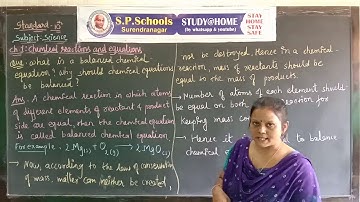 Standard-10
Subject-Science
S.P.Schools
Surendranagar
STUDY@HOME
(To whatsapp & youtube)
STAY
HOME
STAY
SAFE
ch 1: Chemical reactions and equations
Que: what is a balanced chemical
equation? Why should chemical equations
be balanced?
Ans: A chemical reaction in which atoms
of different elements of reactant & product
side are equal then the chemical equation
is called balanced chemical equation.
For example: 2 Mg(s) + O2(g) → 2 MgO(s)
→ Now, according to the law of conservation
of mass, matter can neither be created,
not be destroyed. Hence in a chemical
reaction, mass of reactants should be
equal to the mass of products.
→ Number of atoms of each element should
be equal on both reaction for
keeping mass con
→ Hence it to balance
chemical